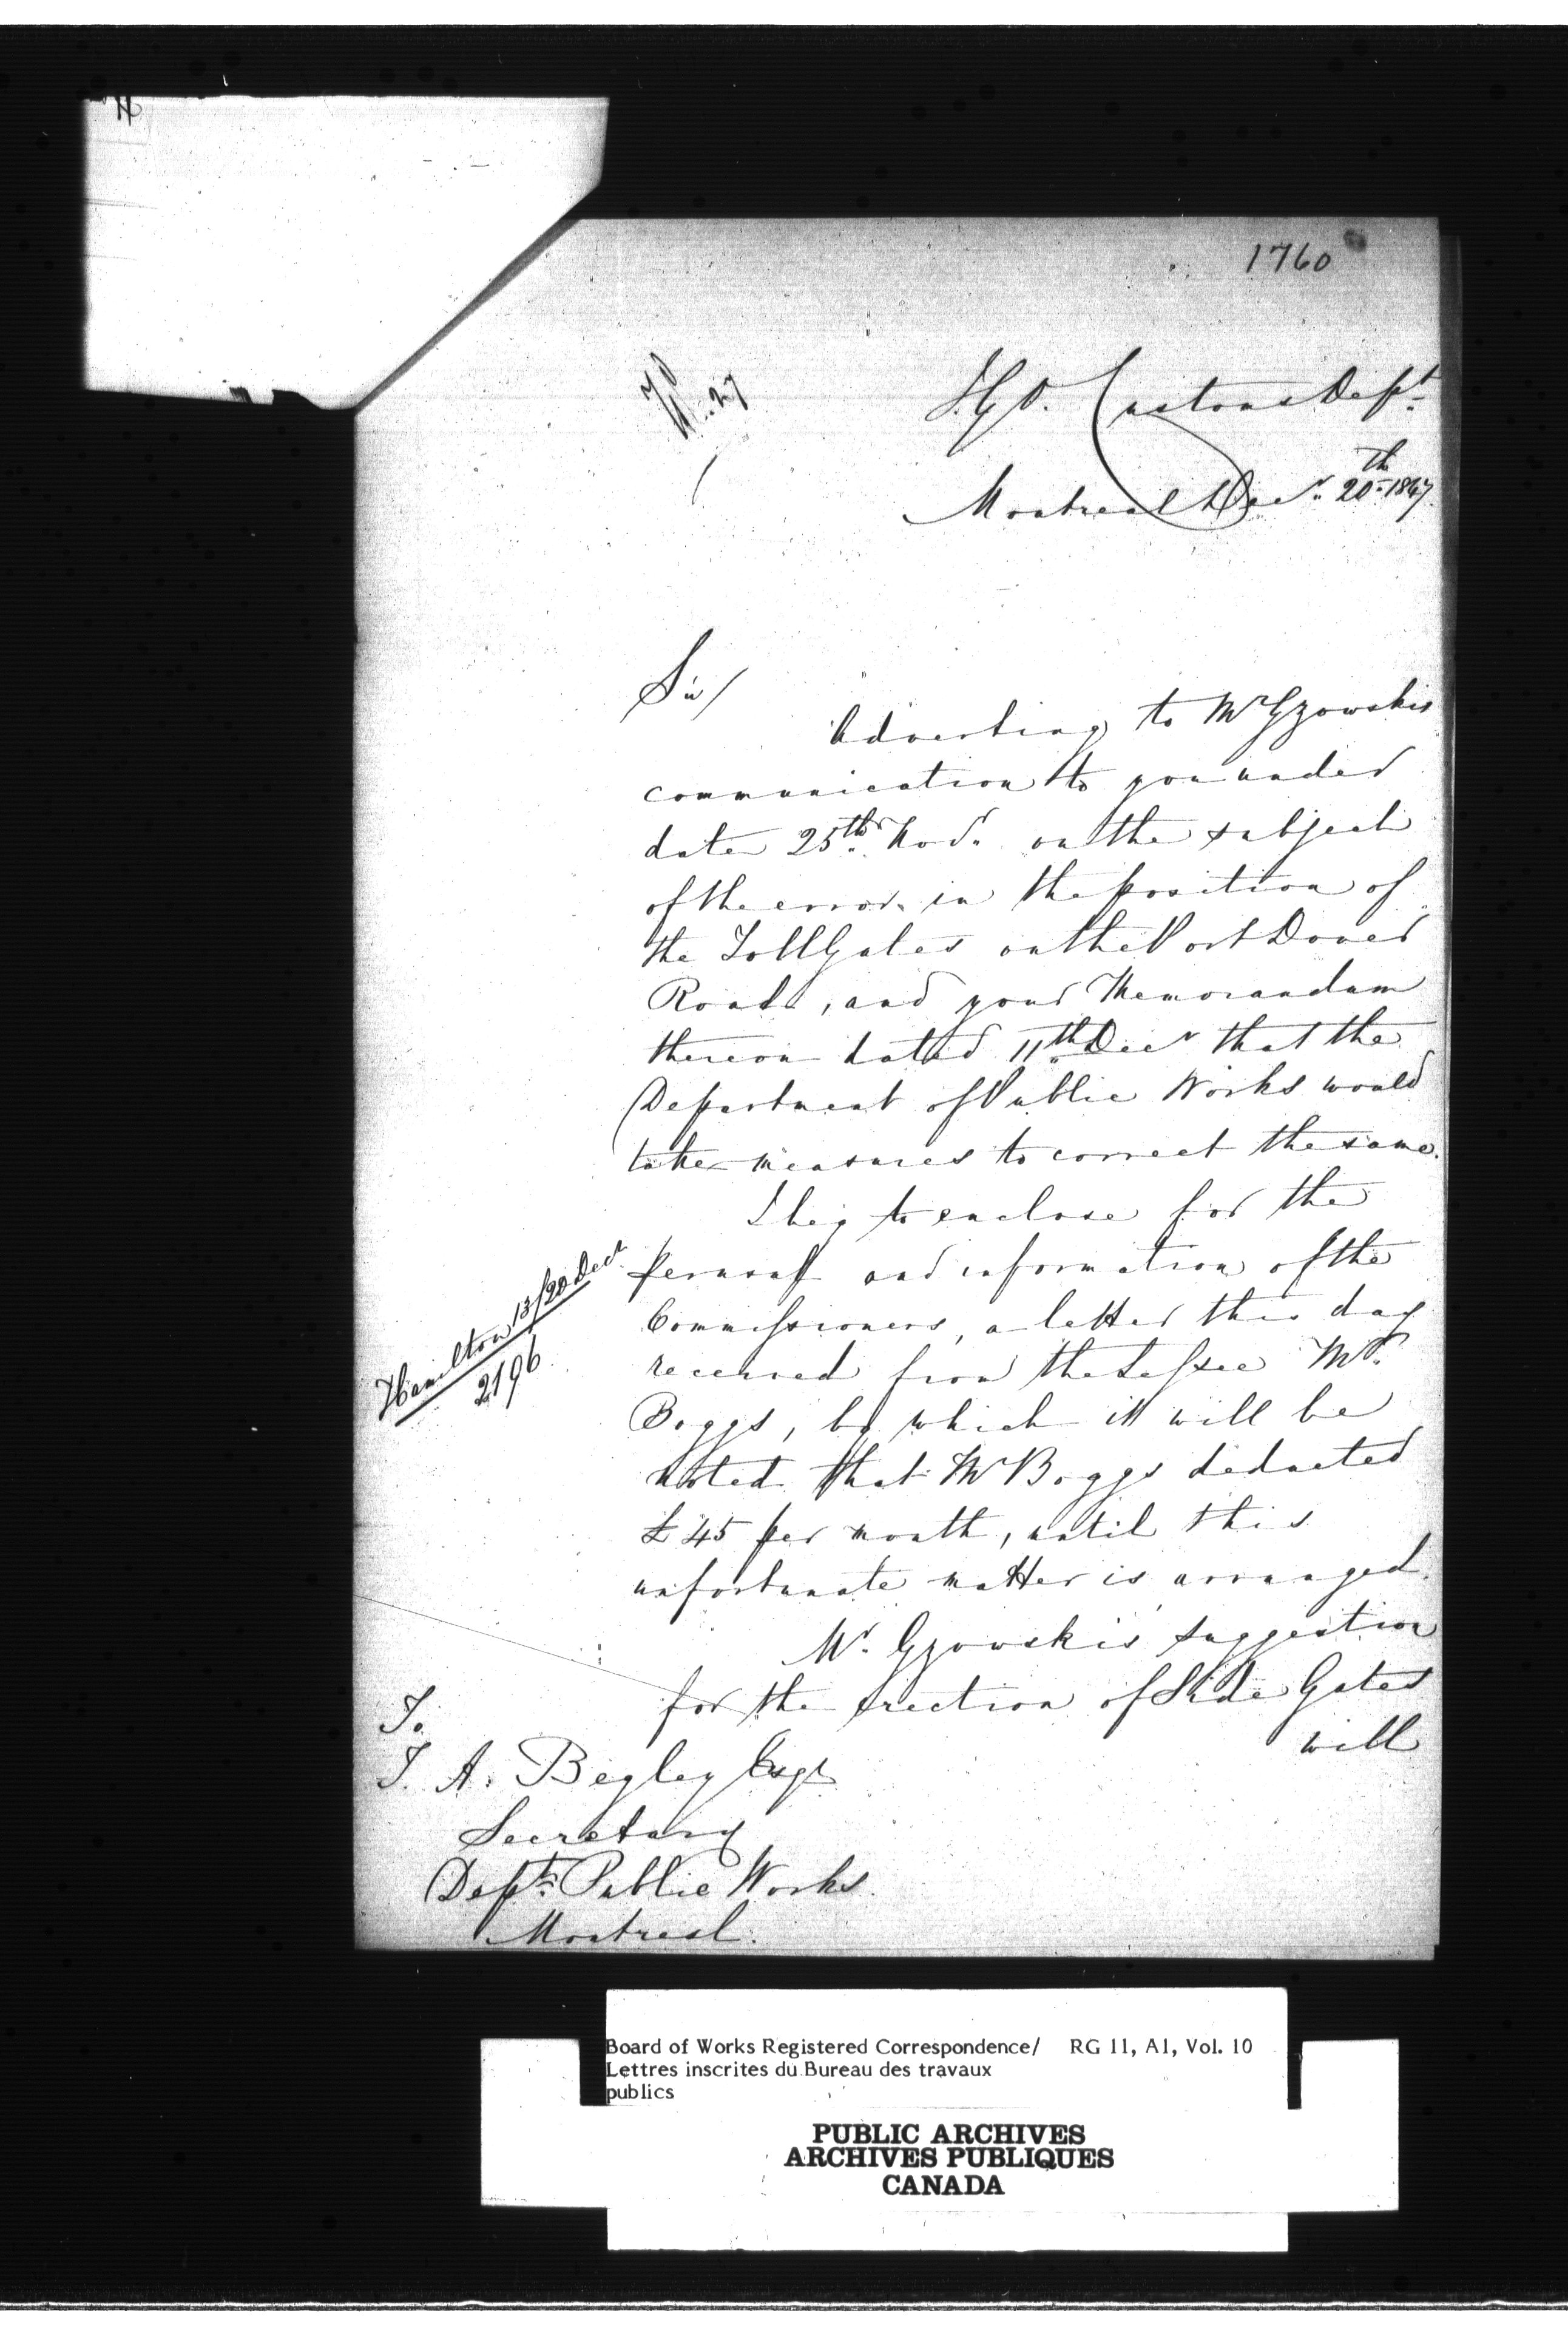 1760
I.G.O. Customs Dept
Montreal Decr. 20th 1847
Sir/
Adverting to Mr Gzowskis
communication to you under
date 25th. Novr. on the subject
of the error in the position of
the Toll Gates on the Port Dover
Road, and your Memorandum
thereon dated 11th Decr that the
Department of Public Works would
take measures to correct the same.
I beg to enclose for the
perusal and information of the
Commissioners, a letter this day
received from the Lessee Mr.
Boggs, by which it will be
noted that Mr Boggs deducted
£45 per month, until this
unfortunate matter is arranged.
Hamilton 13/20 Decr
2196
Mr. Gzowskis suggestion
for the erection of Side Gates
will
To
T. A. Begley Esqr
Secretary
Dept. Public Works
Montreal.
Board of Works Registered Correspondence/ RG 11, A1, Vol. 10
Lettres inscrites du Bureau des travaux
publics
PUBLIC ARCHIVES
ARCHIVES PUBLIQUES
CANADA